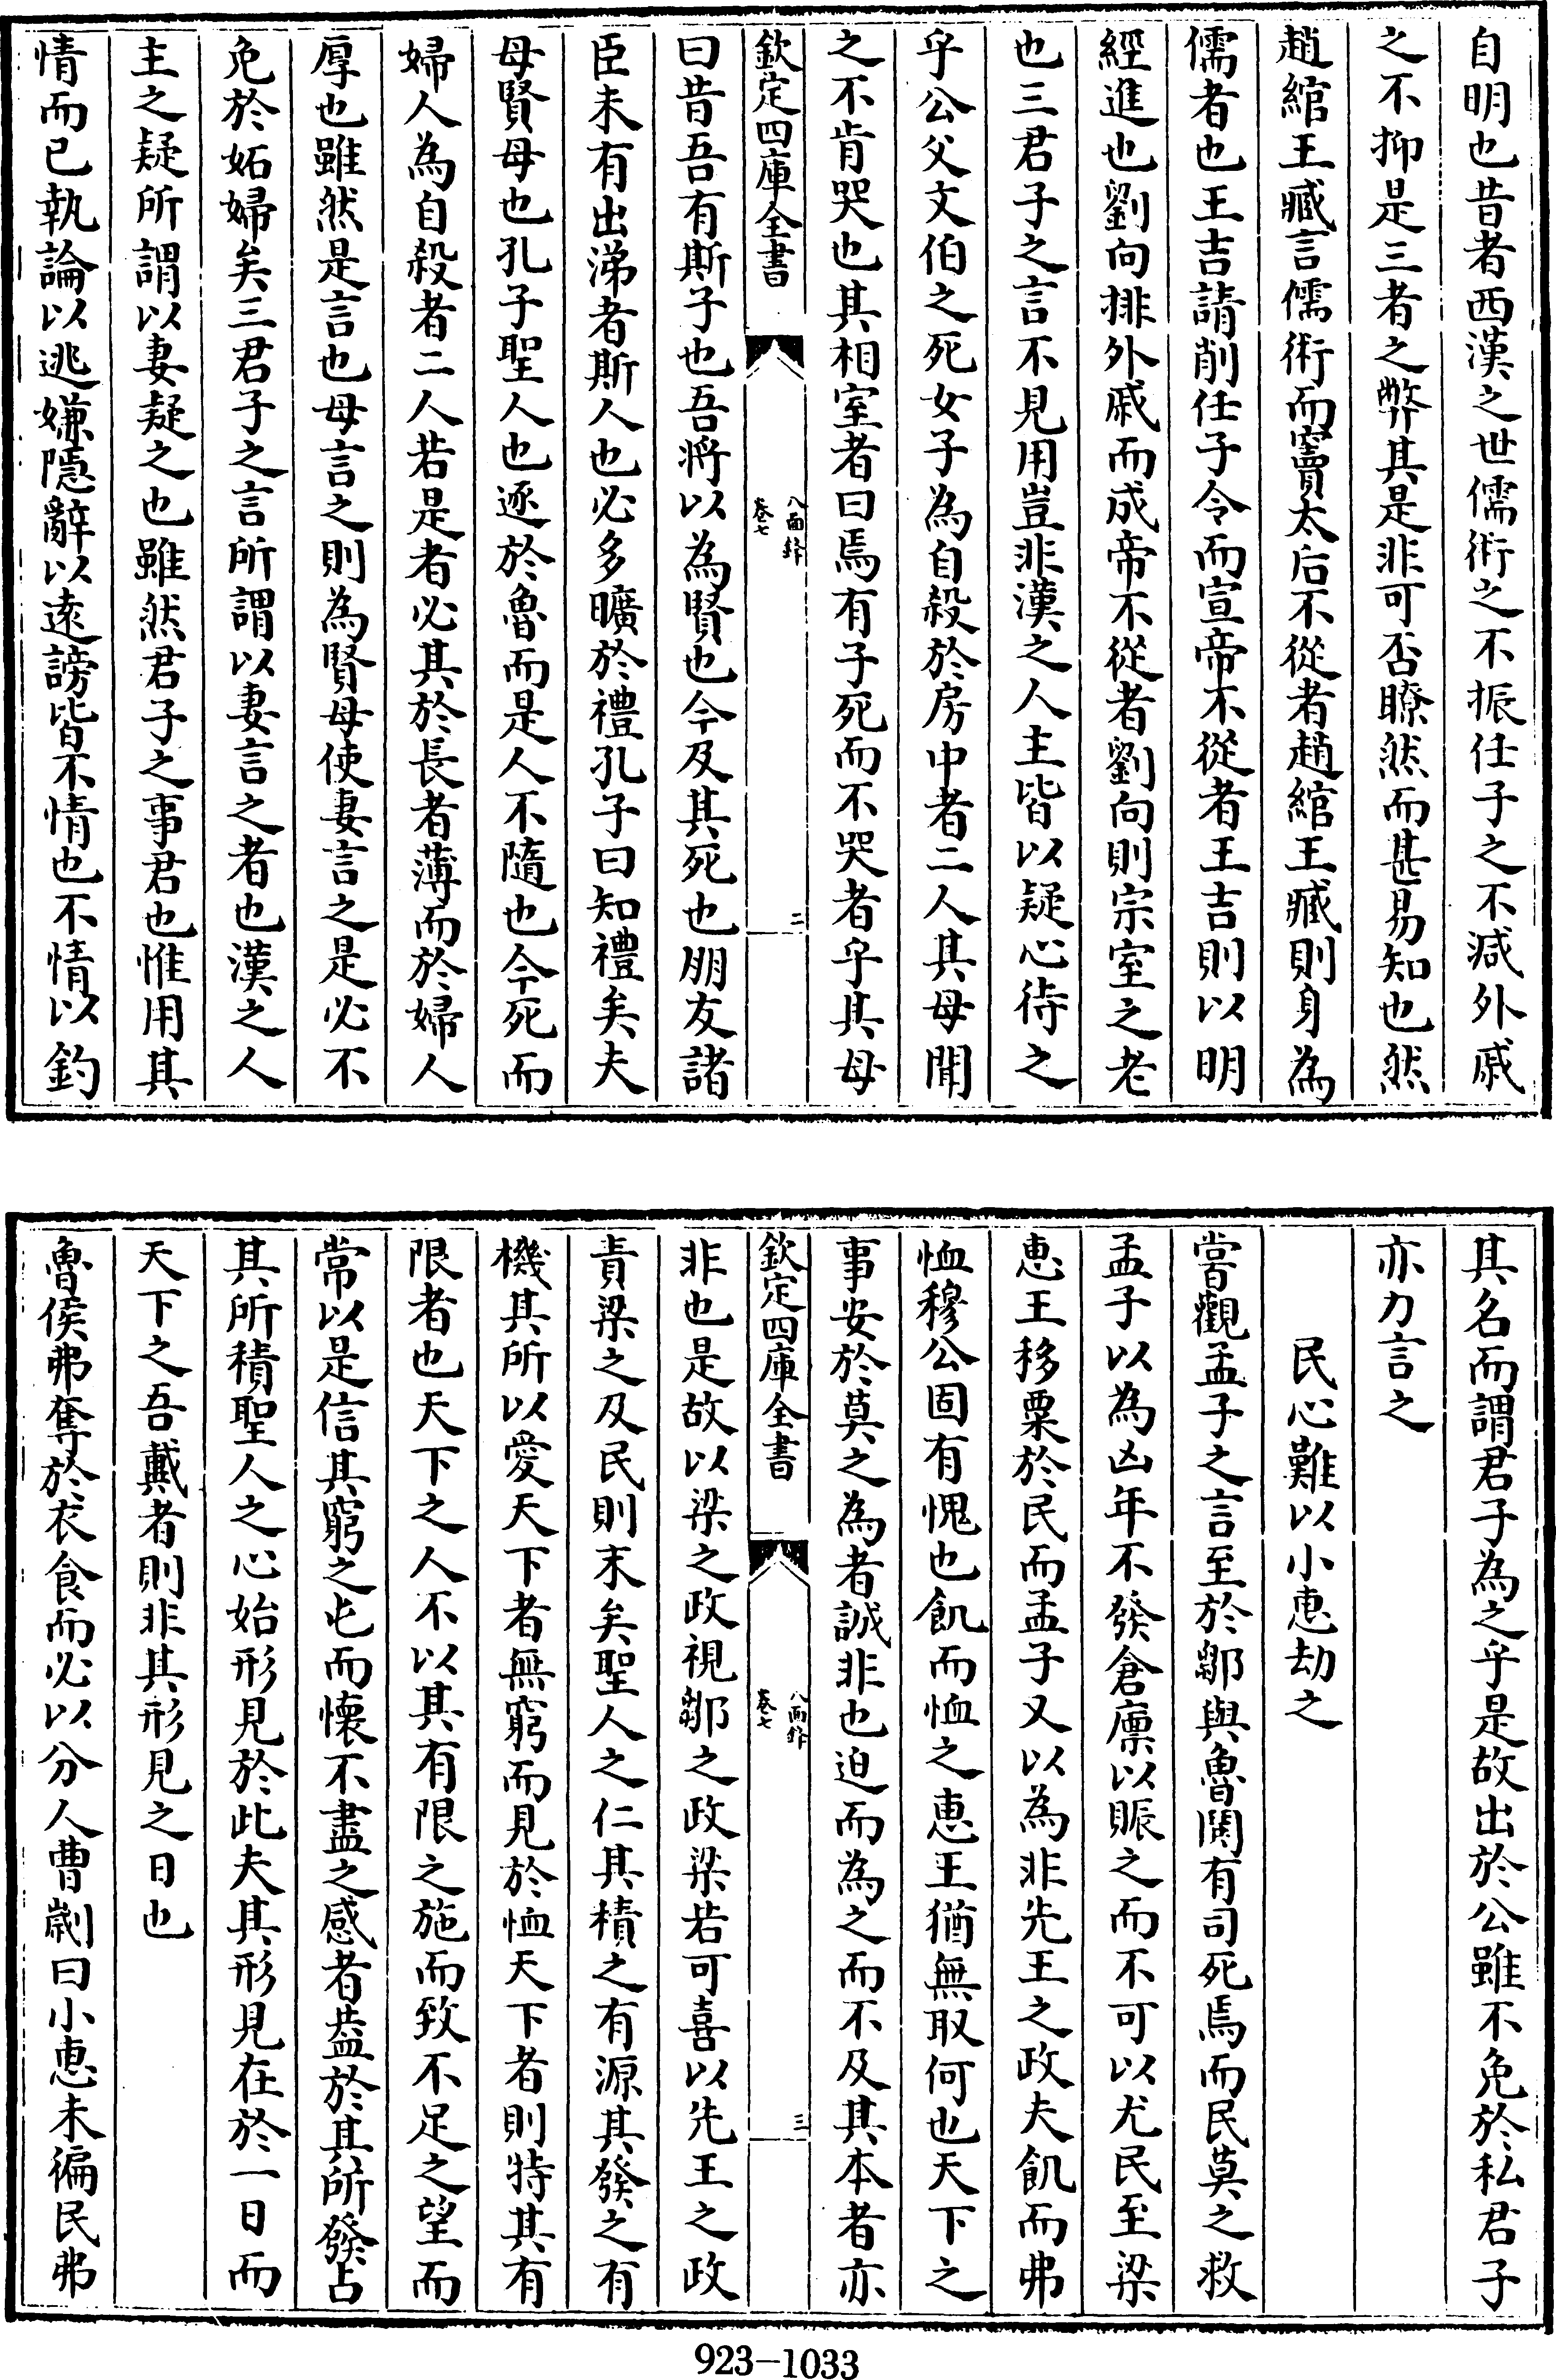 自明也昔者西漢之世儒術之不振任子之不減外戚
之不抑是三者之弊其是非可否瞭然而甚易知也然
趙綰王臧言儒術而竇太后不從者趙綰王臧則身為
儒者也王吉請削任子令而宣帝不從者王吉則以明
經進也劉向排外戚而成帝不從者劉向則宗室之老
也三君子之言不見用豈非漢之人主皆以疑心待之
乎公父文伯之死女子為自殺於房中者二人其母聞
之不肯哭也其相室者曰焉有子死而不哭者乎其母
欽定四庫全書
八面鋒
卷七
二
曰昔吾有斯子也吾將以為賢也今及其死也朋友諸
臣未有出涕者斯人也必多曠於禮孔子曰知禮矣夫
母賢母也孔子聖人也逐於魯而是人不隨也今死而
婦人為自殺者二人若是者必其於長者薄而於婦人
厚也雖然是言也母言之則為賢母使妻言之是必不
免於妬婦矣三君子之言所謂以妻言之者也漢之人
主之疑所謂以妻疑之也雖然君子之事君也惟用其
情而已執論以逃嫌隱辭以遠謗皆不情也不情以釣
其名而謂君子為之乎是故出於公雖不免於私君子
亦力言之
民心難以小惠劫之
嘗觀孟子之言至於鄒與魯鬨有司死焉而民莫之救
孟子以為凶年不發倉廩以賑之而不可以尤民至梁
惠王移粟於民而孟子又以為非先王之政夫飢而弗
恤穆公固有愧也飢而恤之惠王猶無取何也天下之
事安於莫之為者誠非也迫而為之而不及其本者亦
欽定四庫全書
八面鋒
卷七
三
非也是故以梁之政視鄒之政梁若可喜以先王之政
責梁之及民則末矣聖人之仁其積之有源其發之有
機其所以愛天下者無窮而見於恤天下者則特其有
限者也天下之人不以其有限之施而致不足之望而
常以是信其窮之也而懷不盡之感者葢於其所發占
其所積聖人之心始形見於此夫其形見在於一日而
天下之吾戴者則非其形見之日也
魯侯弗奪於衣食而必以分人曹劌曰小惠未徧民弗
923-1033